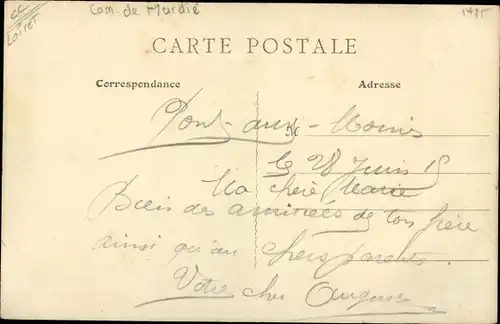 CC
Loiret
Com. de Mardié
CARTE POSTALE
Correspondance
Adresse
Pont-aux-Moines
Le 28 Juin 15
Ma chère Marie
Bien des amitiés de ton frère
ainsi qu'au chers parents.
Votre cher